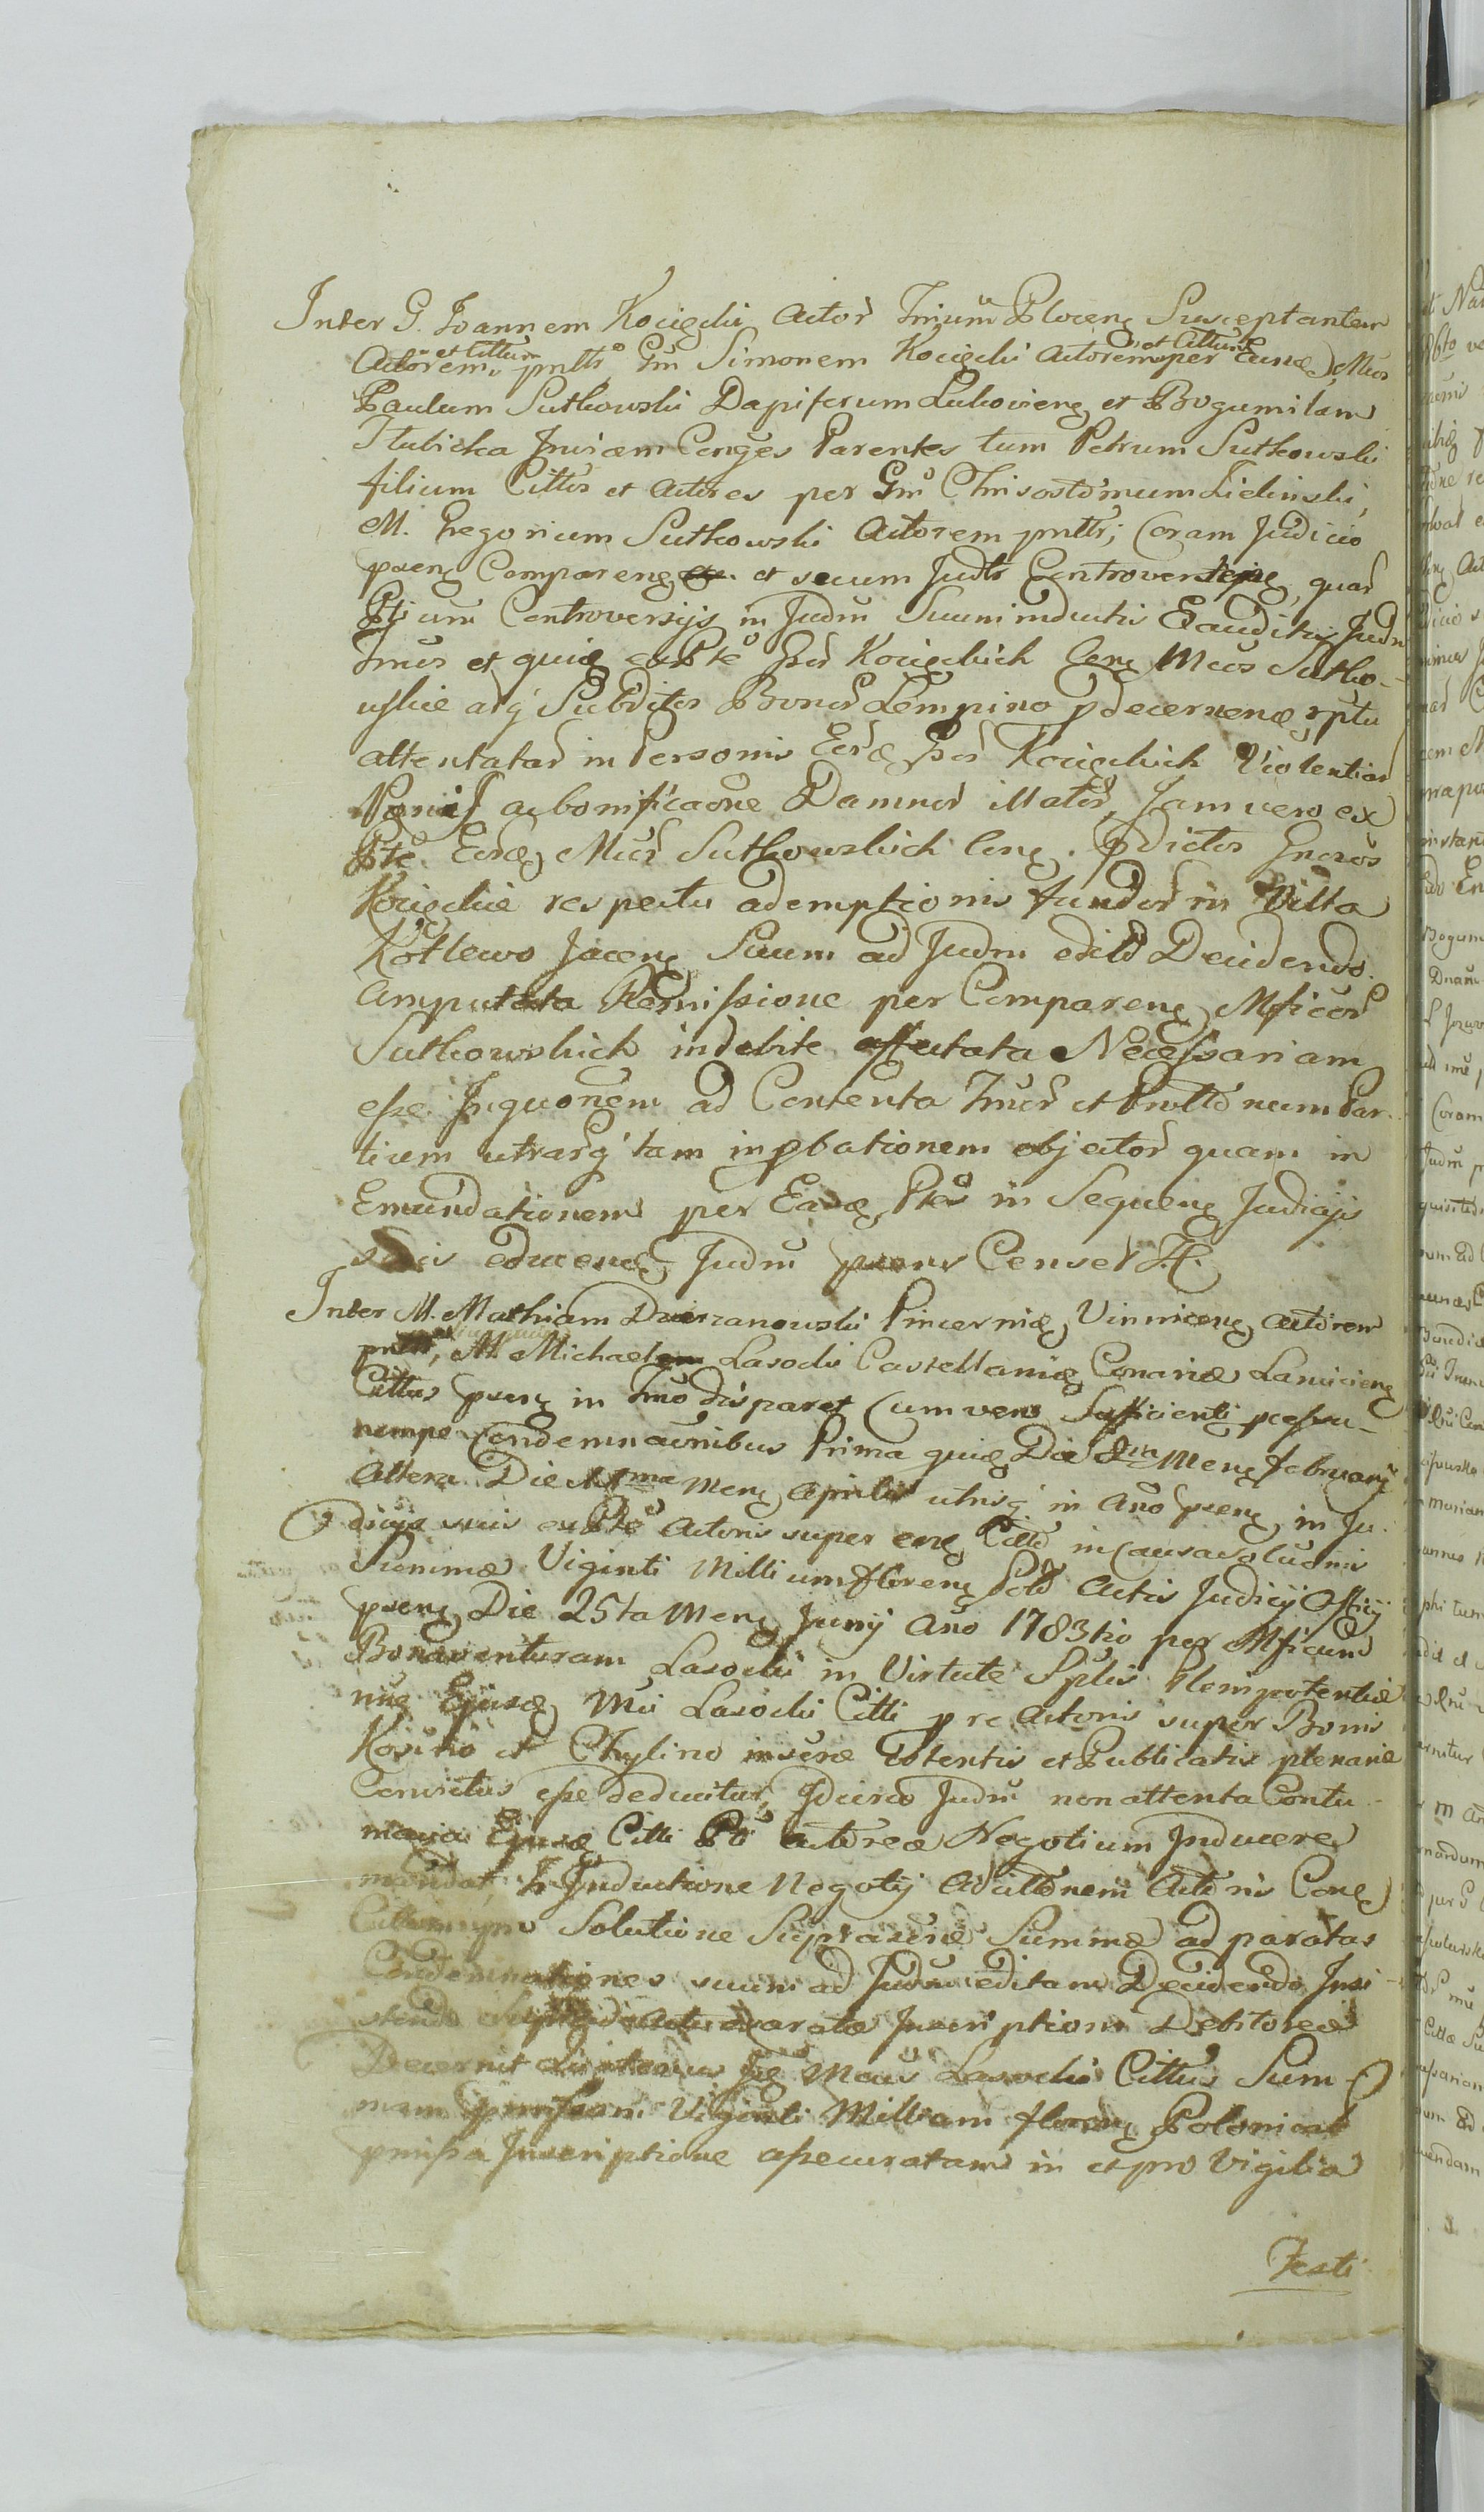 Inter G. Joannem Kocięcki Actor̃ Trr̃ium Plocenꝫ Susceptantem
Actorem et Cittum pnltr̃ Gm̃ Simonem Kocięcki Actorem et Cittum per Eund, Mcos
Paulum Sutkowski Dapiferum Lukovienꝫ et Bogumilam
Jtubicka Jnvicem Conges Parentes tum Petrum Sutkowski
filium Cittos et Actores per Gm̃ Chrisostomum Zielinski,
M. Gregorium Sutkowski Actorem pnltr; Coram Judicio
psenꝫ Comparenꝫ et secum Judtr Controverten, quar̃
Ptium Controversijs in Judm̃ Suum inductis Exauditisꝫ Judm̃
Trr̃inos et quidꝫ ex Pte Gor̃ Kocięckich Cenꝫ Mcos Sutko-
wskie atqꝫ Subditos Bonor̃ Lempino p decernenꝫ rptu
attentatar̃ in Personis Eorꝫ Gor̃ Kocięckich Violentiar̃
Pænis ac bonificaõne Damnor̃ illator̃, Jam vero ex
Pte Eorꝫ Mcor̃ Sutkowskich Cenꝫ. P dictos Gnosos
Kocięckie respectu ademptionis fundor̃ in Villa
Kotlewo Jacenꝫ Suum ad Judm̃ edito Decidendo.
Amputata Remissione per Comparenꝫ Mficos
Sutkowskich indebite affectata Necessariam
esse Jnquonem̃ ad Contenta Trr̃inor̃ et Pnltõnum Par-
tium utrarqꝫ tam in pbationem objector̃ quam in
Emundationem per Easdꝫ Ptes in Sequenꝫ Judicijs
suis educendꝫ Judm̃ psens Censet H.
Inter M. Mathiam Dzierzanowski Pincernidꝫ Vinnicenꝫ Actorem
pnltr̃, M. Michael Lasocki Castellanidꝫ Conarien Lanciciensꝫ
Cittus psenꝫ in Trr̃ino disparet Cum vero Sufficienti pcessu-
nempe Condemnaõnibus Prima quidꝫ Die 2da Menꝫ februarij
Altera Die 1ma Menꝫ Aprilis utrisqꝫ in Año psenꝫ, in Ju-
dicijs suis ex Pte Actoris super eũdꝫ Citto in Causa Soluõnis
Summæ Viginti Millium florenꝫ Pold Actis Judicij Officij
psenꝫ Die 25ta Menꝫ Junij Año 1783tio per Mficum
Bonaventuram Lasocki in Virtute Splis Plenipotentiæ
nme Ejusdꝫ Mci Lasocki Citti pre Actoris super Bonis
Kositio et Chylino inscræ Potentis et Publicatis plenarie
Convictus esse deducitur, Jdcirco Judm̃ non attenta Contu-
macia Ejusdꝫ Citti Pti Actoreæ Negotium Jnducere
mandat, Jn Jnductione Negotij Ad Cittõnem Actoris Conꝫ
Cittum pro Solutione Suprascræ Summæ ad paratas
Condemnationes suum ad Judm̃ editam Decidendo Jnsi-
stendo Suprad Actis paratæ Jnscriptioni Debitoreæ
Decernit Quatenus Jdꝫ Mcus Lasocki Cittus Sum-
mam pmissam Viginti Millium florenꝫ Polonical
pmissa Jnscriptione assecuratam in et pro Vigilia
Festi